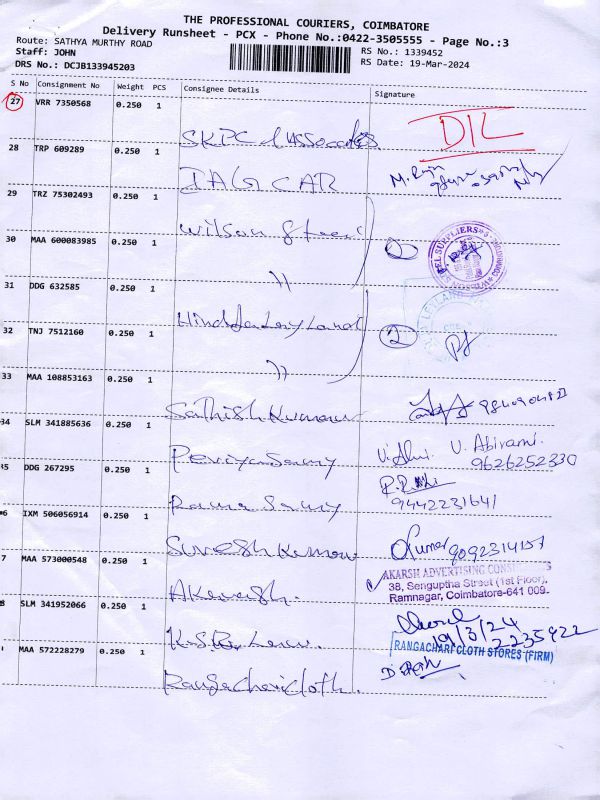 THE PROFESSIONAL COURIERS, COIMBATORE
Delivery Runsheet - PCX - Phone No.:0422-3505555 - Page No.:3
Route: SATHYA MURTHY ROAD
RS No.: 1339452
Staff: JOHN
RS Date: 19-Mar-2024
DRS No.: DCJB133945203
S No Consignment No Weight PCS Consignee Details Signature
27 VRR 7350568 0.250 1
SKPC Associates DIL
28 TRP 609289 0.250 1
JAG CAR
29 TRZ 75302493 0.250 1
Wilson Steel
30 MAA 600083985 0.250 1
SUPPLIERS
31 DDG 632585 0.250 1
32 TNJ 7512160 0.250 1
2
33 MAA 108853163 0.250 1
Sathish Kumar
34 SLM 341885636 0.250 1
Periyasamy U. Abirami.
9626252330
35 DDG 267295 0.250 1
Rama Samy 9442231641
36 IXM 506056914 0.250 1
Suresh Kumar Kumar 9092314157
7 MAA 573000548 0.250 1
AKARSH ADVERTISING
38, Senguptha Street (1st Floor),
Ramnagar, Coimbatore-641 009.
Akarsh.
8 SLM 341952066 0.250 1
19/3/24
2235922
RANGACHARI CLOTH STORES (FIRM)
MAA 572228279 0.250 1
Rangachari Cloth.